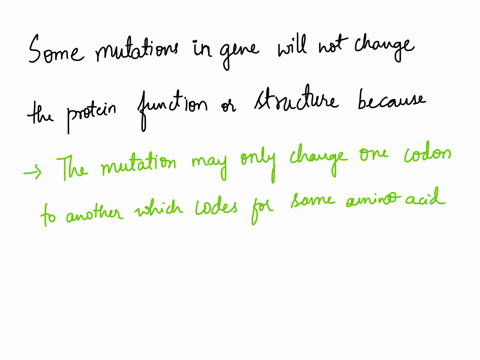 Some mutations in gene will not change
the protein function or structure because
→ The mutation may only change one codon
to another which codes for same amino acid